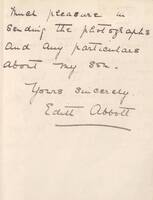 much pleasure in
sending the photographs
and any particulars
about my son.
Yours sincerely.
Edith Abbott